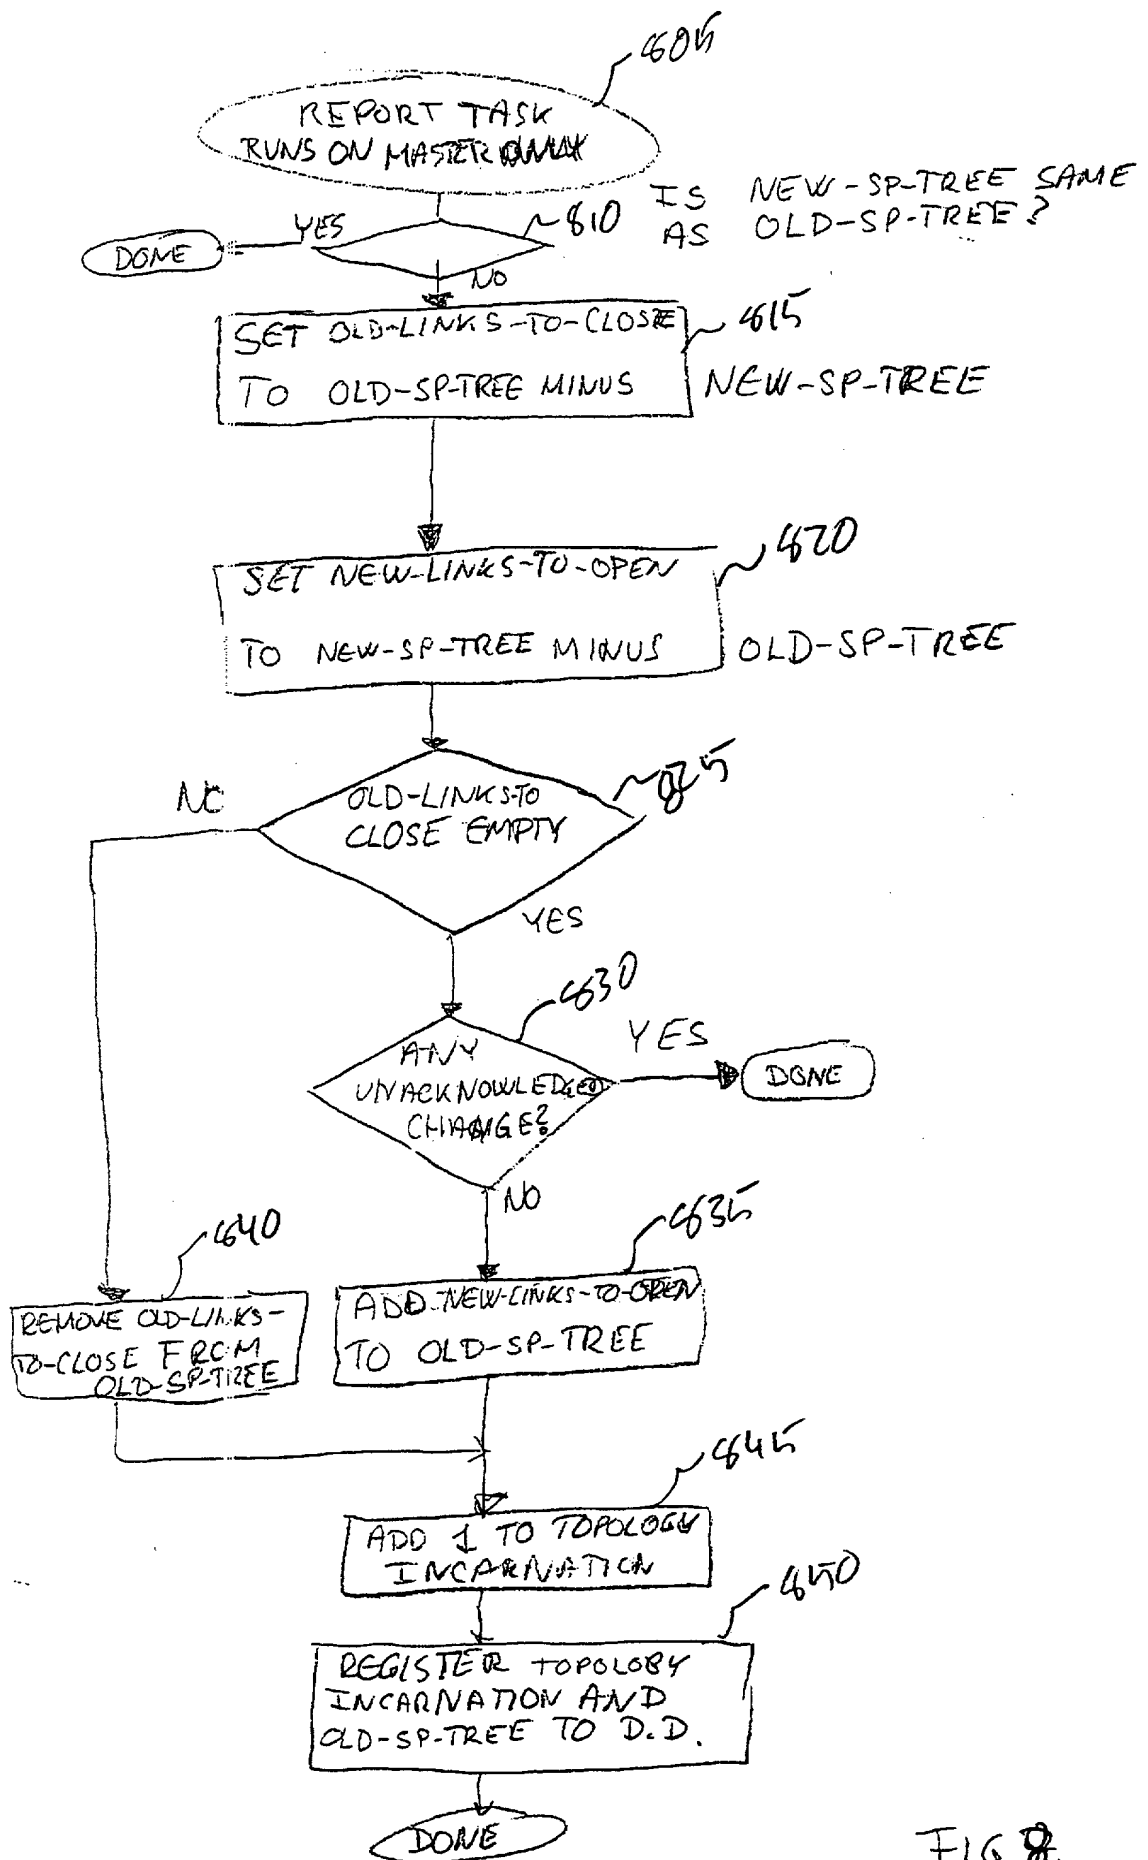 805
REPORT TASK
RUNS ON MASTER ONLY
810
IS NEW-SP-TREE SAME
AS OLD-SP-TREE?
YES
DONE
NO
815
SET OLD-LINKS-TO-CLOSE
TO OLD-SP-TREE MINUS NEW-SP-TREE
820
SET NEW-LINKS-TO-OPEN
TO NEW-SP-TREE MINUS OLD-SP-TREE
825
NO
OLD-LINKS-TO
CLOSE EMPTY
YES
830
ANY
UNACKNOWLEDGED
CHANGE?
YES
DONE
NO
840
835
REMOVE OLD-LINKS-
TO-CLOSE FROM
OLD-SP-TREE
ADD NEW-LINKS-TO-OPEN
TO OLD-SP-TREE
845
ADD 1 TO TOPOLOGY
INCARNATION
850
REGISTER TOPOLOGY
INCARNATION AND
OLD-SP-TREE TO D.D.
DONE
FIG 8